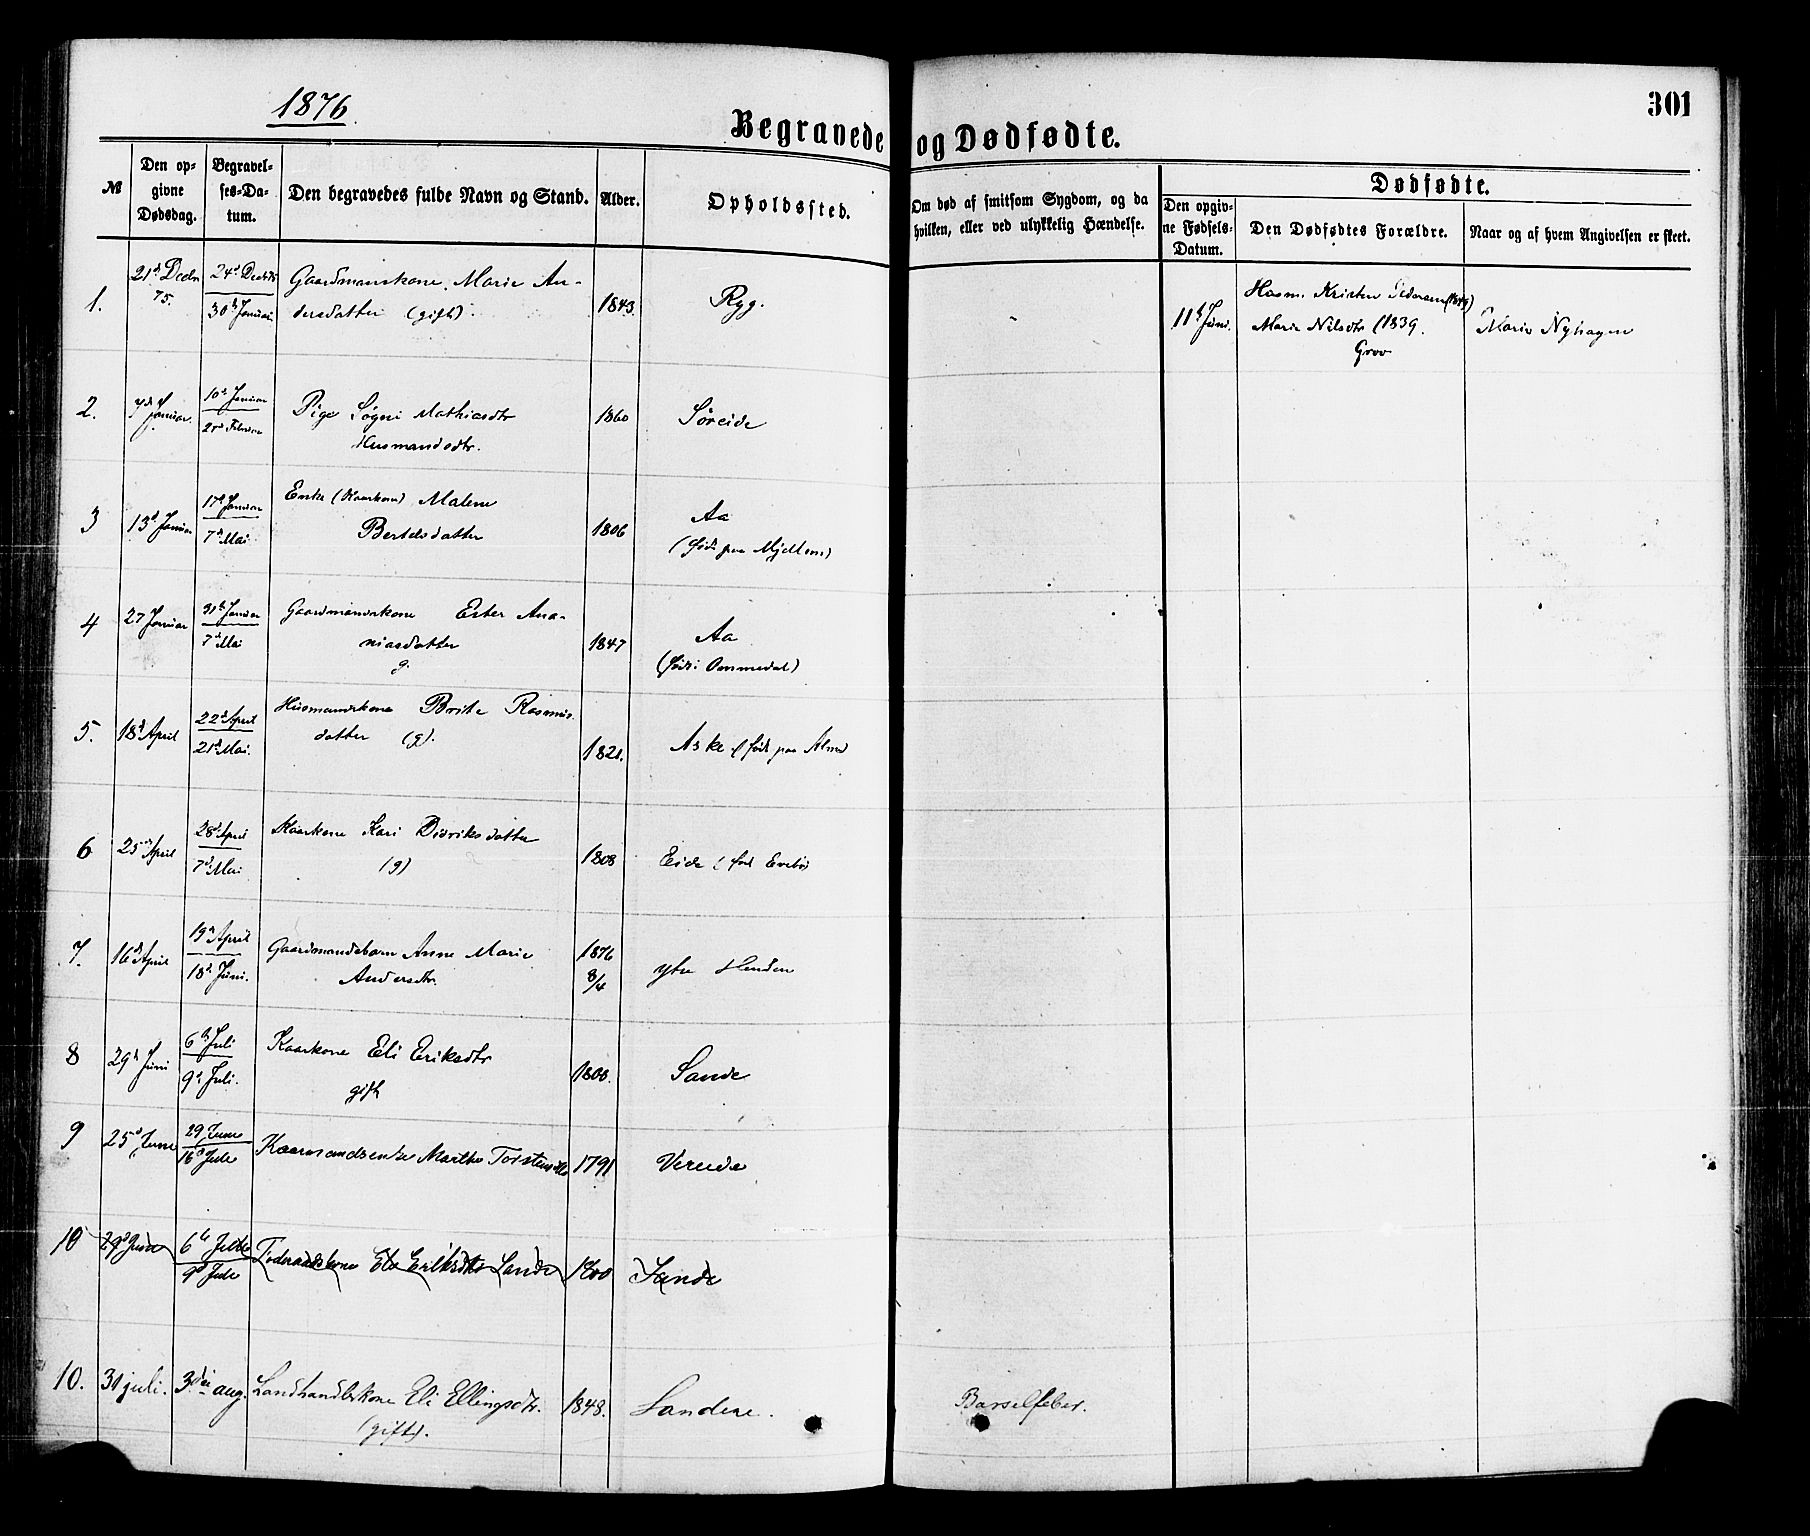 1876.
301
Begravede og Dødfødte.
№
Den op-
givne
Dødsdag.
Begravel-
ses-Da-
tum.
Den begravedes fulde Navn og Stand.
Alder.
Opholdssted.
Om død af smitsom Sygdom, og da
hvilken, eller ved ulykkelig Hændelse.
Dødfødte.
Den opgiv-
ne Fødsels-
Datum.
Den Dødfødtes Forældre.
Naar og af hvem Angivelsen er skeet.
1.
21de Decbr
75.
30te Januar
Gaardmandskone Marie An-
dersdatter (gift).
1843.
Ryg.
11te Juni.
Husm. Kristen Pedersen (1849)
Marie Nilsdtr (1839.
Grov
Marie Nyhagen
2.
7de Januar.
10de Januar
Pige Søgni Mathiasdtr
Husmandsdtr.
1860
Søreide
3
13de Januar
17de Januar
7de Mai
Enke (Kaarkone) Malene
Bertelsdatter
1806
Aa
(født paa Mjellem)
4
27 Januar
31te Januar
7de Mai
Gaardmandskone Ester Ana-
niasdatter
g.
1847
Aa
(født i Ommedal)
5.
18de April
22de April
21de Mai.
Husmandskone Brite Rasmus-
datter (g).
1821.
Aske (født paa
6
25de April
28de April
7de Mai
Kaarkone Kari Didriksdatter
(g)
1808
Eide (født Evebø
7.
16de April
19de April
18de Juni.
Gaardmandsbarn Anne Marie
Andersdtr.
1876
8/4
ytre Henden
8
29de Juni
6te Juli
9de Juli.
Kaarkone Eli Eriksdtr
gift
1800.
Sande
9
25de June
29 June
16de Jule
Kaarmandsenke Marthe Torstensdtr
1791
Vereide
10
29de June
6te Jule
9de Jule
Eli Eriksdtr Sande
1800
Sande
10.
31 juli.
3die aug.
Landhandlerkone Eli Ellingsdtr.
(gift).
1848.
Sandene.
Barselfeber.